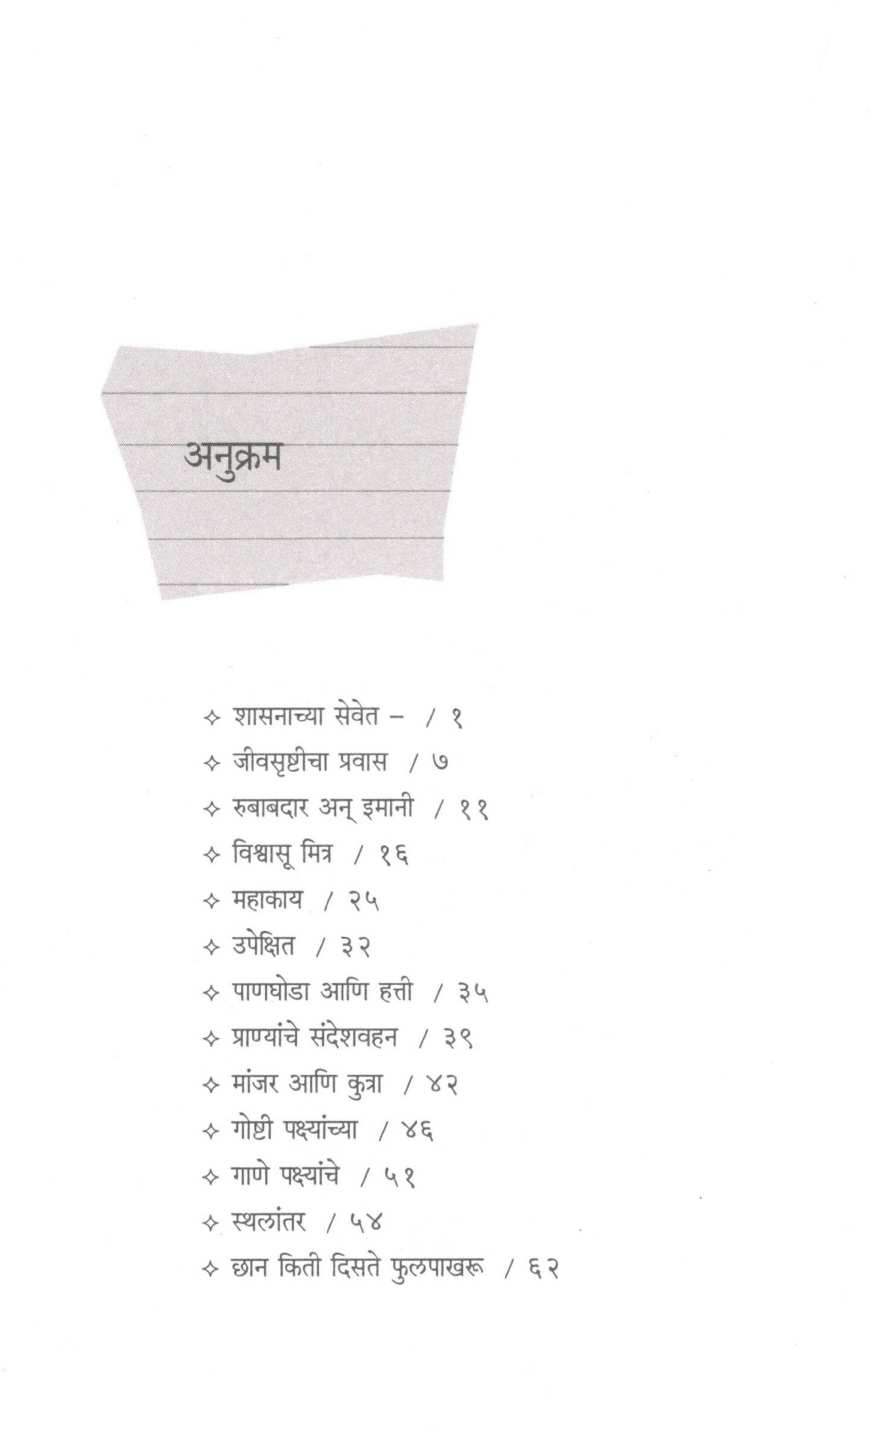 अनुक्रम
✧ शासनाच्या सेवेत – / १
✧ जीवसृष्टीचा प्रवास / ७
✧ रुबाबदार अन् इमानी / ११
✧ विश्वासू मित्र / १६
✧ महाकाय / २५
✧ उपेक्षित / ३२
✧ पाणघोडा आणि हत्ती / ३५
✧ प्राण्यांचे संदेशवहन / ३९
✧ मांजर आणि कुत्रा / ४२
✧ गोष्टी पक्ष्यांच्या / ४६
✧ गाणे पक्ष्यांचे / ५१
✧ स्थलांतर / ५४
✧ छान किती दिसते फुलपाखरू / ६२